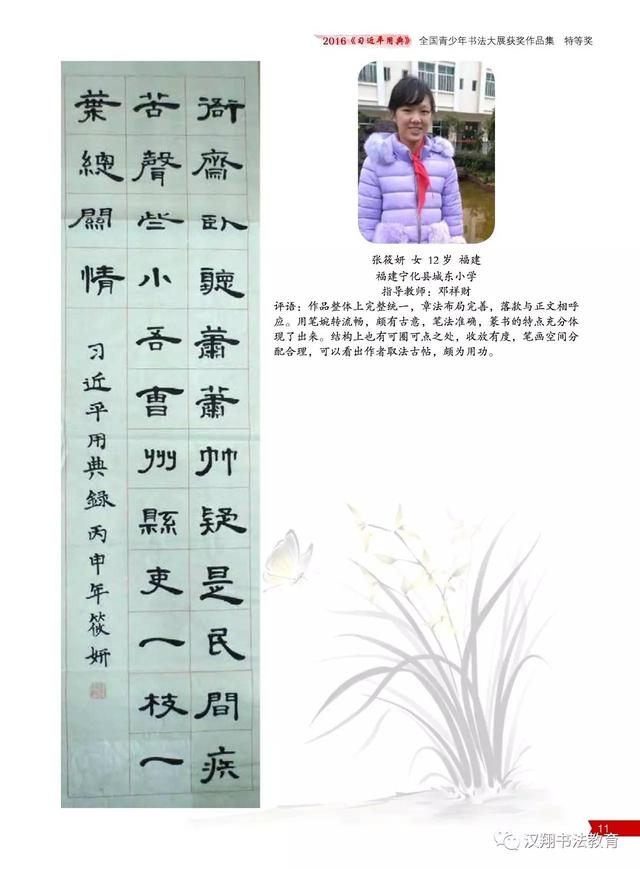 2016《习近平用典》 全国青少年书法大展获奖作品集 特等奖
衙齋臥聽蕭蕭竹疑是民間疾
苦聲些小吾曹州縣吏一枝一
葉總關情
习近平用典錄丙申年筱妍
张筱妍 女 12岁 福建
福建宁化县城东小学
指导教师：邓祥财
评语：作品整体上完整统一，章法布局完善，落款与正文相呼
应。用笔婉转流畅，颇有古意，笔法准确，篆书的特点充分体
现了出来。结构上也有可圈可点之处，收放有度，笔画空间分
配合理，可以看出作者取法古帖，颇为用功。
11
汉翔书法教育